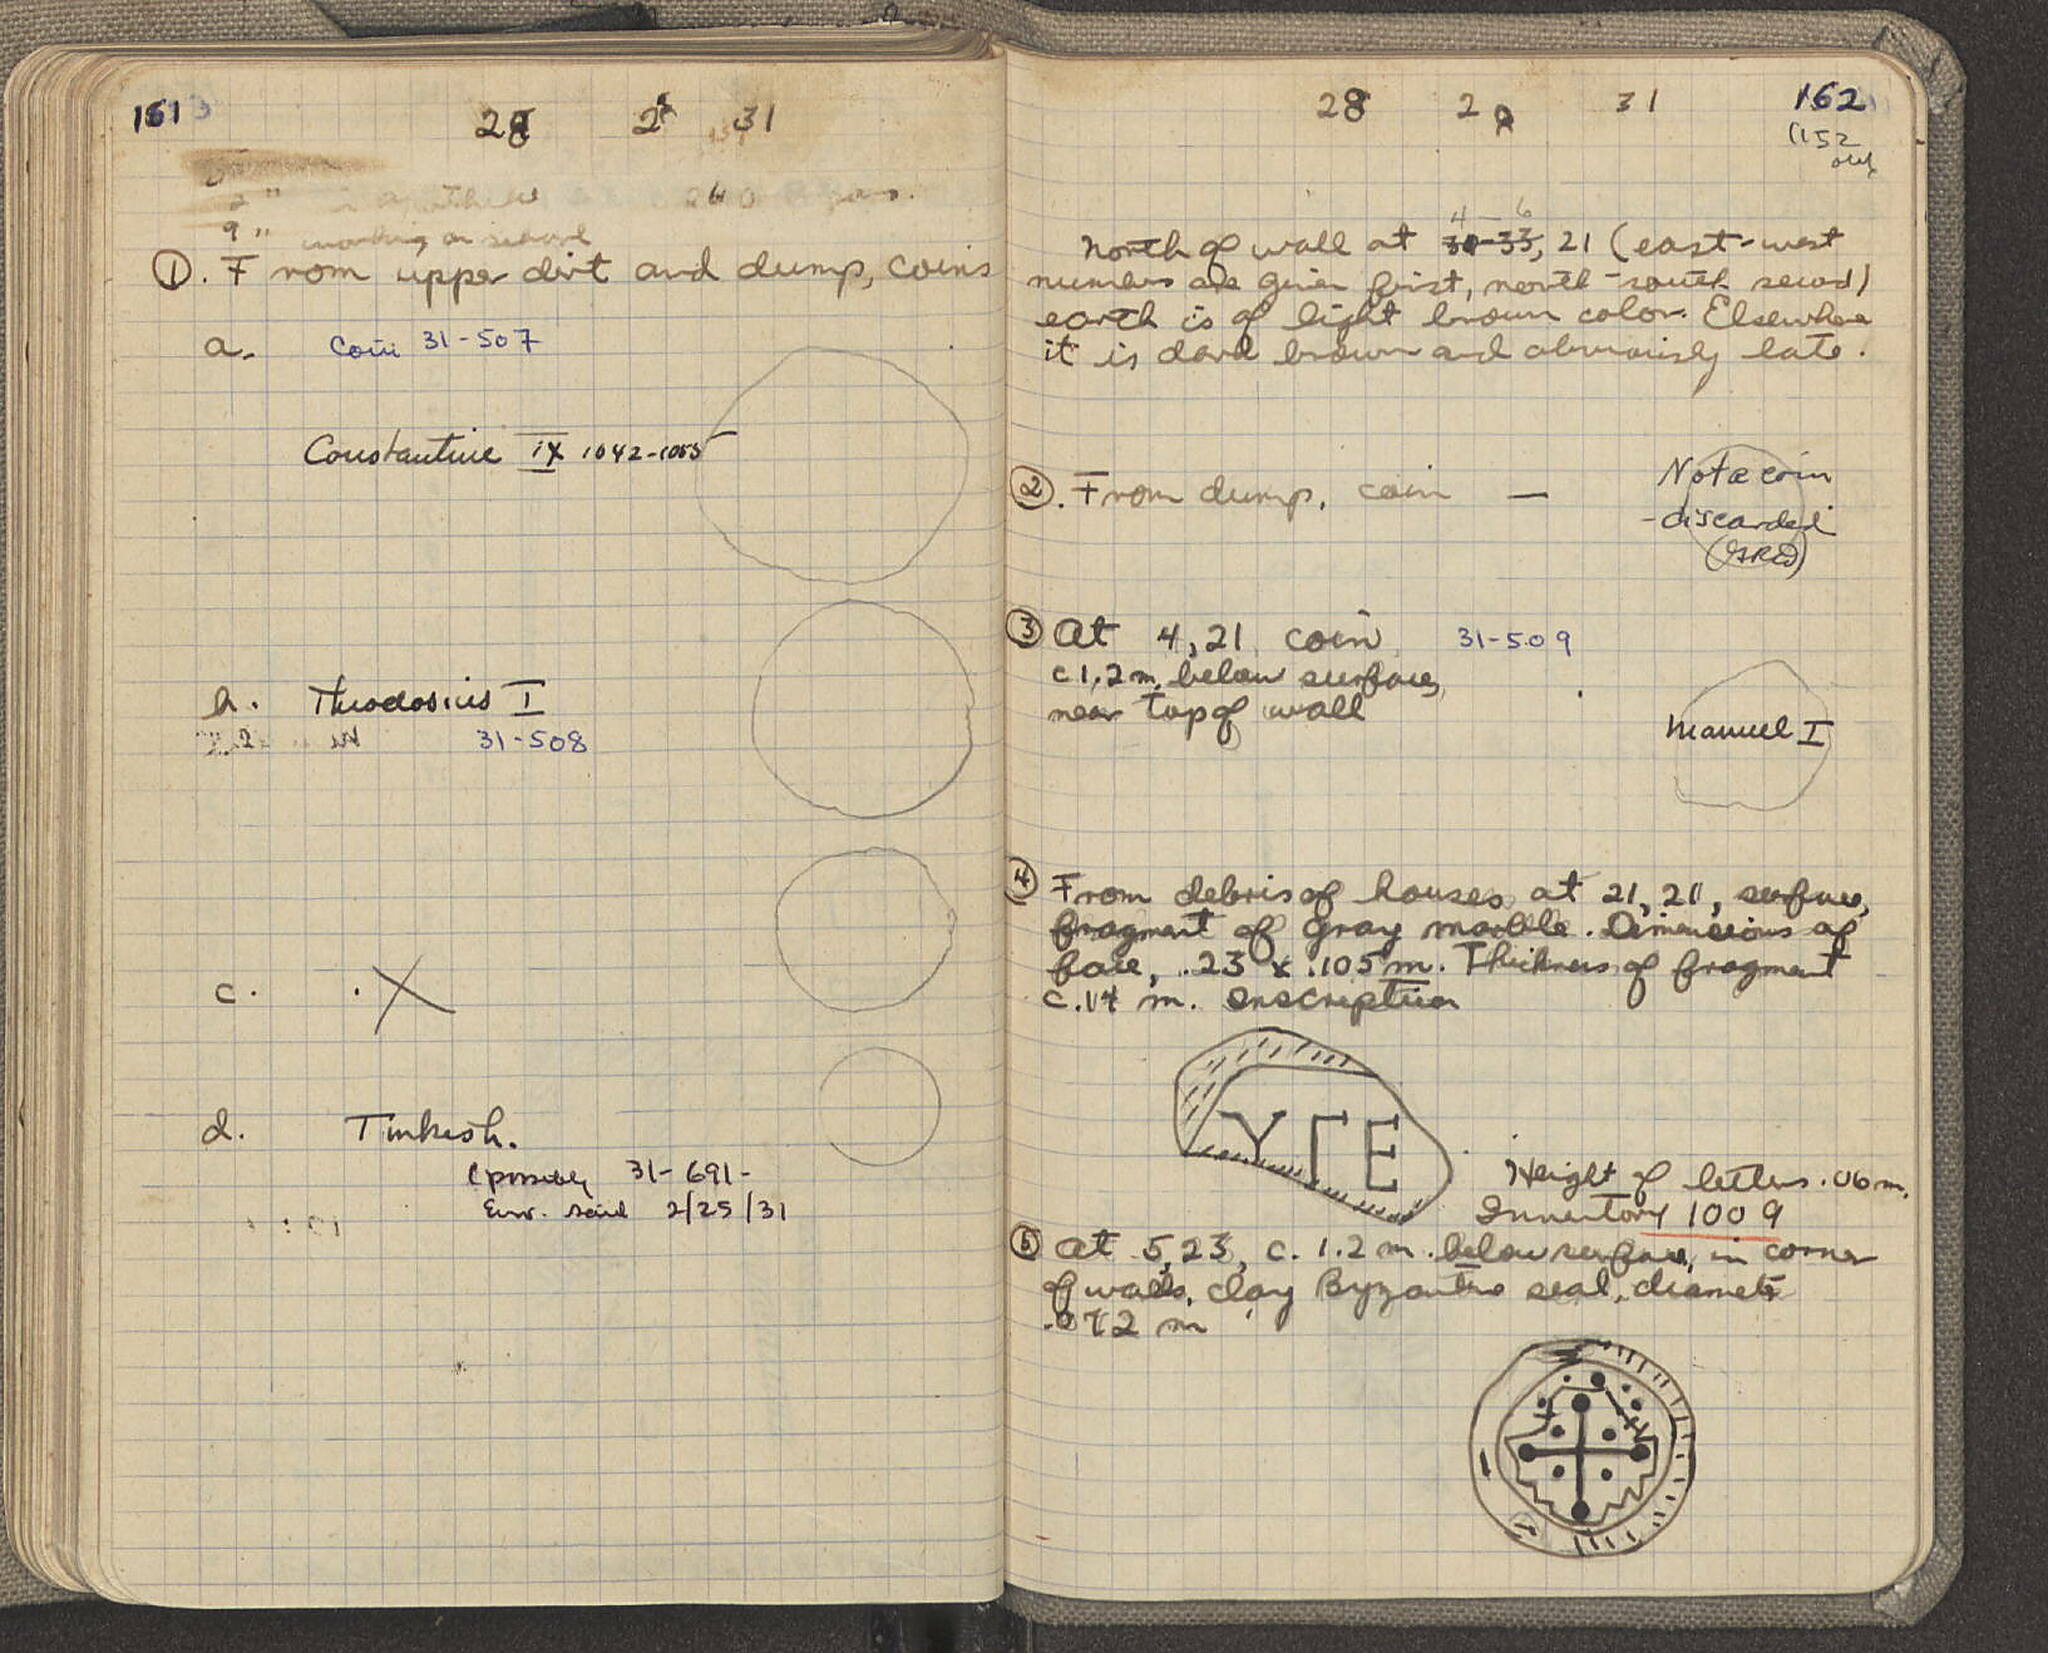 161
28 2 31
2 "
9 " working on
① . From upper dirt and dump, coins
a. Coin 31-507
Constantine IX 1042-1055
b. Theodosius I
31-508
c. X
d. Turkish.
(possibly 31-691-
Env. said 2/25/31
28 2 31 162
(152
North of wall at 4-6 30-33, 21 (east-west
numbers are given first, north-south second)
earth is of light brown color. Elsewhere
it is dark brown and obviously late.
② . From dump, coin — Not a coin
- discarded
③ At 4,21 coin, 31-509
c 1.2 m. below surface,
near top of wall
Manuel I
④ From debris of houses at 21, 21, surface,
fragment of gray marble. Dimensions of
face, .23 x .105 m. Thickness of fragment
c .14 m. Inscription
ΥΓΕ
Height of letters .06 m.
Inventory 1009
⑤ At 5,23, c. 1.2 m. below surface, in corner
of walls, clay Byzantine seal, diameter
m